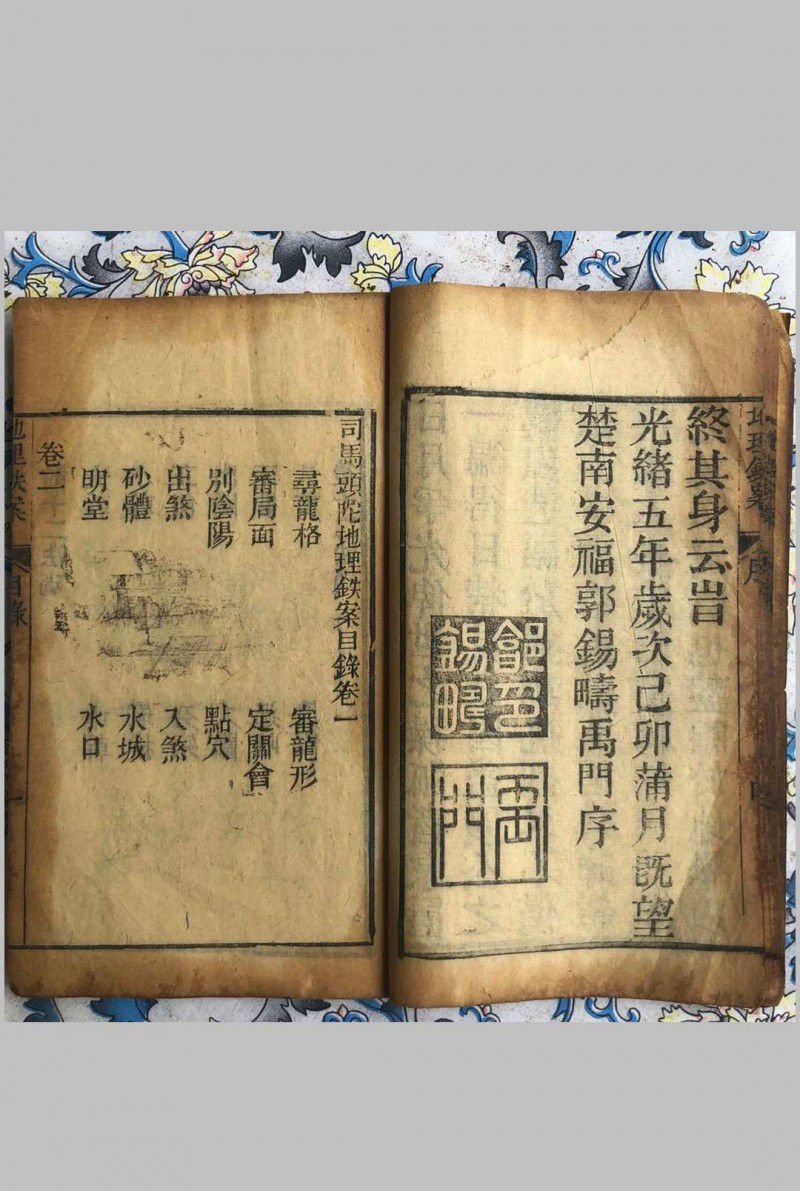 地理鉄案
序
終其身云旹
光緒五年歲次己卯蒲月既望
楚南安福郭錫疇禹門序
司馬頭陀地理鉄案目錄卷一
尋龍格 審龍形
審局面 定關會
別陰陽 點穴
出煞 入煞
砂體 水城
明堂 水口
卷二
地理鉄案
目錄